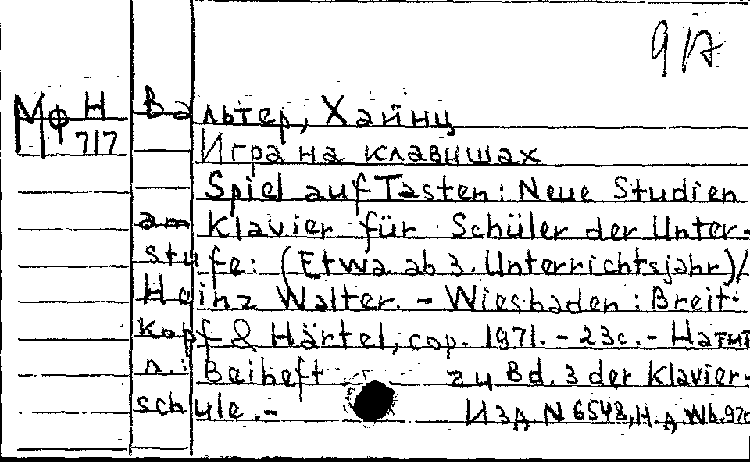 9 А
МФ Н 717
Вальтер, Хайнц
Игра на клавишах
Spiel auf Tasten: Neue Studien
am Klavier für Schüler der Unter-
stufe: (Etwa ab 3. Unterrichtsjahr)/
Heinz Walter. - Wiesbaden: Breit-
kopf & Härtel, cop. 1971. - 23с. - На тит.
л.: Beiheft zu Bd. 3 der Klavier-
schule. - Изд N 6548, Н.д. Wb.